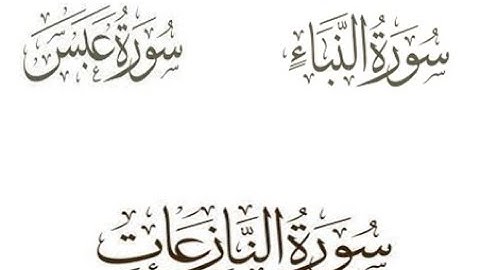 سُورَةُ النَّبَاءِ
سُورَةُ عَبَسَ
سُورَةُ النَّازِعَاتِ